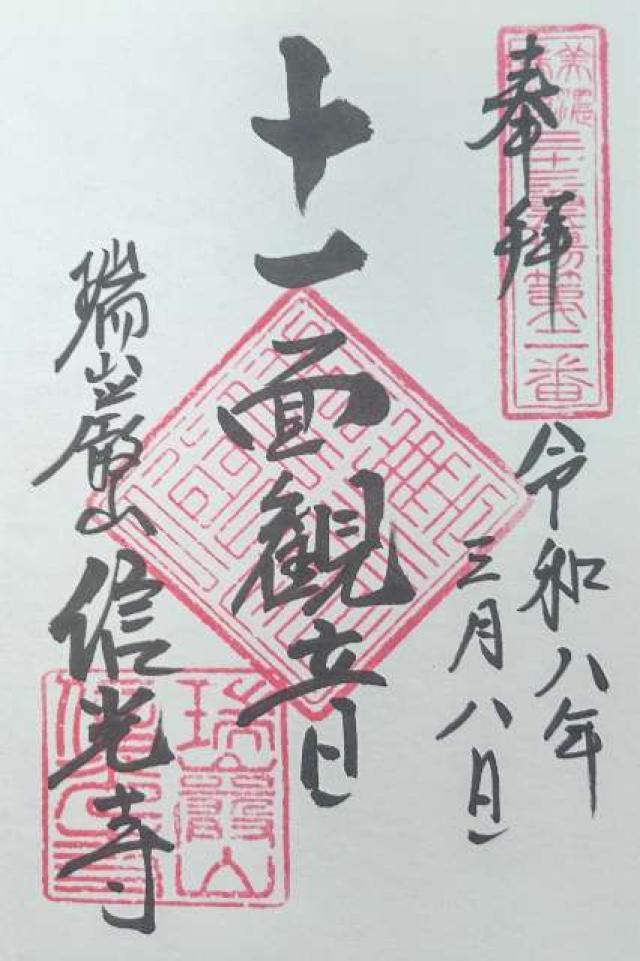 奉拝
美濃三十三霊場第二番
令和八年
三月八日
十一面観音
瑞巌山
信光寺
瑞巌山